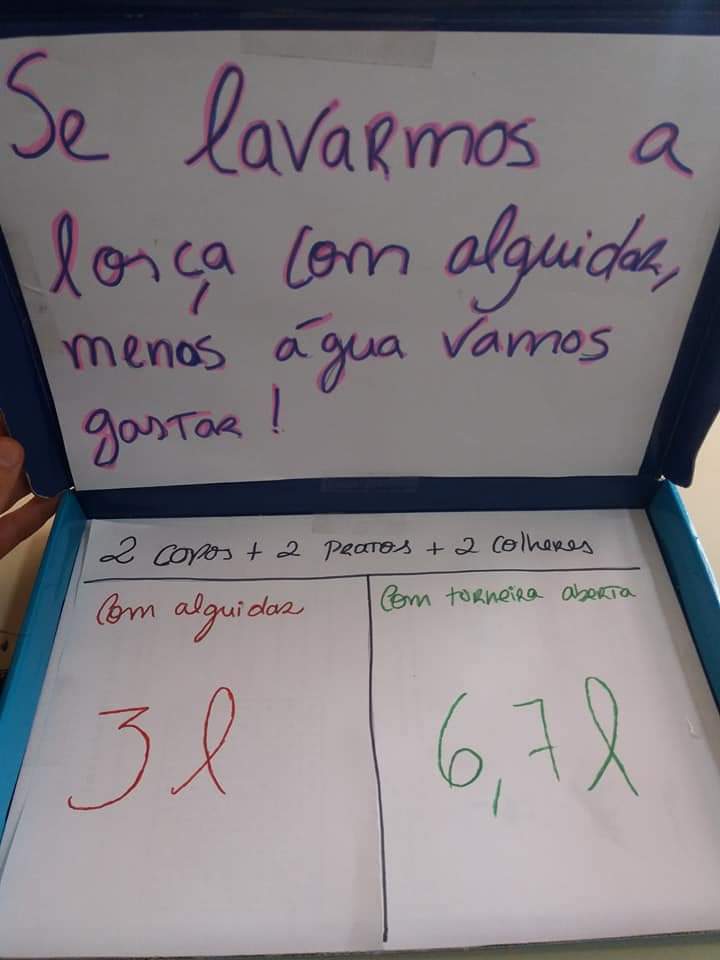 Se lavarmos a
loiça com alguidar,
menos água vamos
gastar!
2 copos + 2 pratos + 2 colheres
Com alguidar
Com torneira aberta
3 l
6,7 l